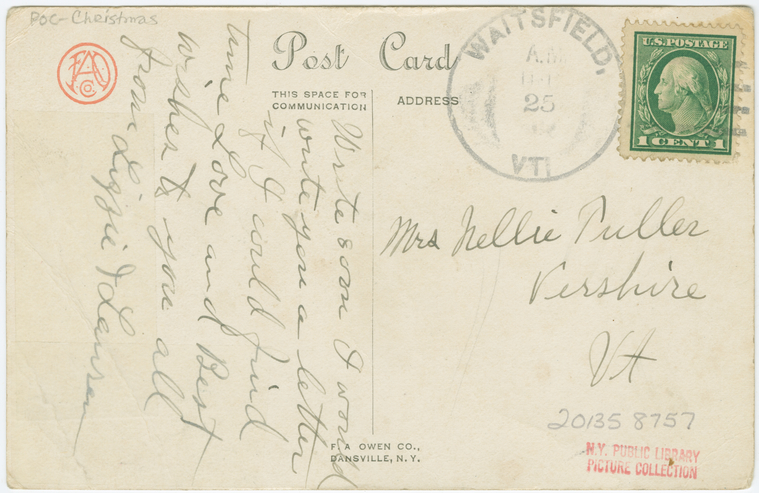 POC-Christmas
FAO
Co.
Post Card
THIS SPACE FOR
COMMUNICATION
ADDRESS
WAITSFIELD,
A.M.
25
VT.
U.S. POSTAGE
1 CENT 1
Write soon I would
write you a letter
if I could find
time Love and Best
wishes to you all
from Lizzie &
Mrs Nellie Fuller
Vershire
Vt
20135 8757
N.Y. PUBLIC LIBRARY
PICTURE COLLECTION
F. A. OWEN CO.,
DANSVILLE, N. Y.